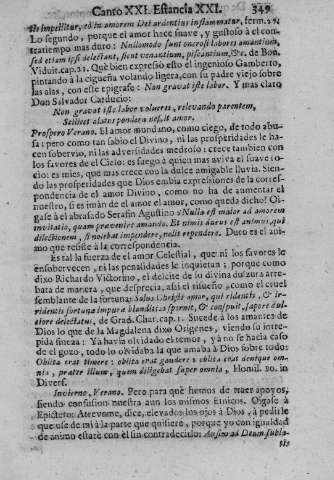 Canto XXI. Estancia XXI. 349
se impellitur, ed in amorem Dei ardentius inflammatur, serm. 2.
Lo segundo, porque el amor hace suave, y gustoso à el con-
tratiempo mas duro: Nullomodo sunt onerosi labores amantium,
sed etiam ipsi delectant, sicut venantium, piscantium, &c, de Bon.
Viduit. cap. 21. Què bien expressò esto el ingenioso Gamberto,
pintando à la cigueña volando ligera, con su padre viejo sobre
las alas, con este epigrafe: Non gravat iste labor. Y mas claro
Don Salvador Carducio:
Non gravat iste labor volucres, relevando parentem,
Scilicet alatæ pondera nescit amor.
Prospero Verano. El amor mundano, como ciego, de todo abu-
sa: pero como tan sabio el Divino, ni las prosperidades le ha-
cen sobervio, ni las adversidades medroso: crece tambien con
los favores de el Cielo: es fuego à quien mas aviva el suave ro-
cio: es mies, que mas crece con la dulce amigable lluvia. Sien-
do las prosperidades que Dios embia expressiones de la corres-
pondencia de el amor Divino, como no ha de aumentar el
nuestro, si es imàn de el amor el amor, como queda dicho? Oi-
gase à el abrasado Serafin Agustino: Nulla est maior ad amorem
invitatio, quam prævenire amando. Et nimis durus est animus, qui
dilectionem, si nolebat impendere, nolit rependere. Duro es el ani-
mo que resiste à la correspondencia.
Es tal la fuerza de el amor Celestial, que ni los favores le
ensobervecen, ni las penalidades le inquietan; porque como
dixo Richardo Victorino, el deleite de su divina dulzura arre-
bata de manera, que desprecia, assi el risueño, como el cruel
semblante de la fortuna: Salus Christi amor, qui ridentis, & ir-
ridentis fortunæ impura blanditias spernit, & conspuit, sapore dul-
ciore delectatus, de Grad. Char. cap. 1. Sucede à los amantes de
Dios lo que de la Magdalena dixo Origenes, viendo su intre-
pida fineza: Yà havia olvidado el temor, y à no se hacia caso
de el gozo, todo lo olvidaba la que amaba à Dios sobre todo:
Oblita erat timere: oblita erat gaudere: oblita erat denique om-
nis, præter illum, quem diligebat super omnia, Homil. 10. in
Divers.
Invierno, Verano. Pero para què hemos de traer apoyos,
siendo confusion nuestra aun los mismos Etnicos. Oigase à
Epicteto: Atrevome, dice, elevados los ojos à Dios, à pedirle
que use de mi à la parte que quisiere, porque yo con igualdad
de animo estarè con èl sin contradecirlo: Ausim ad Deum subla-
tis